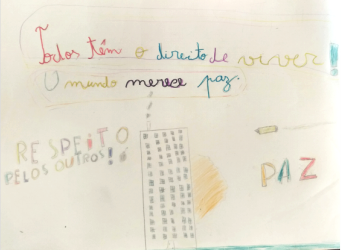 Todos têm o direito de viver
O mundo merece paz.
RESPEITO
PELOS OUTROS!
PAZ